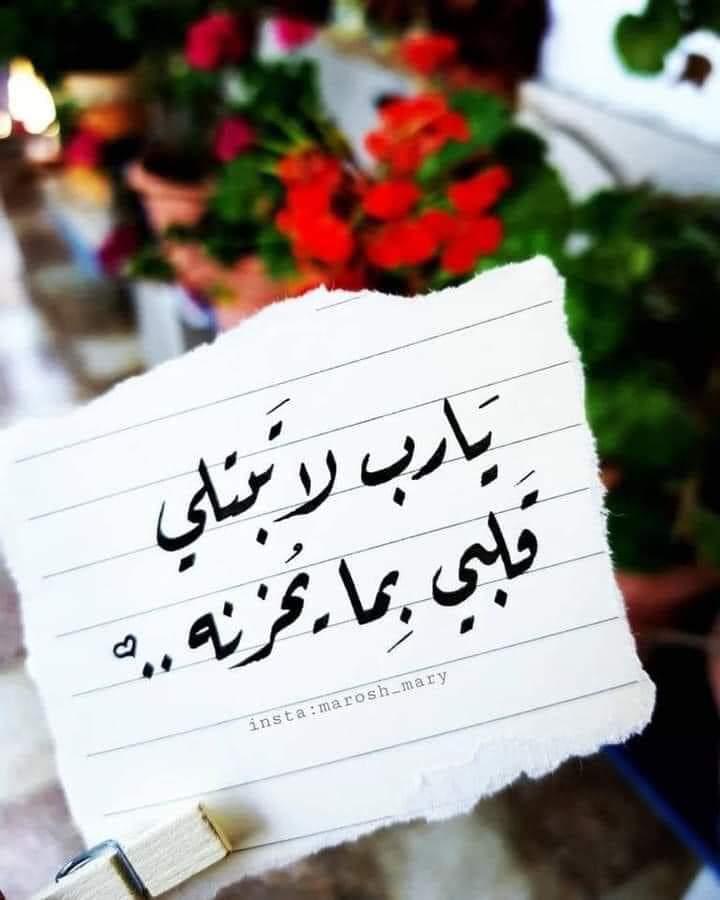 يَارب لا تَبتلي
قَلبي بِما يُحزنه .. ♡
insta:marosh_mary